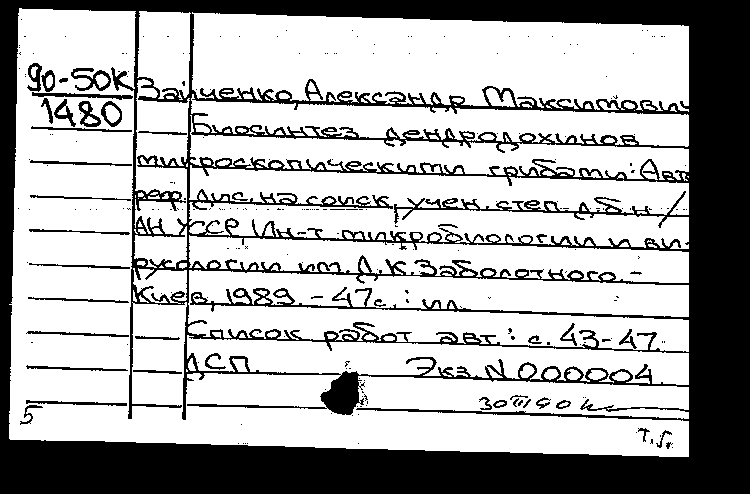 90-50К
1480
Зайченко, Александр Максимович
Биосинтез дендродохинов
микроскопическими грибами: Авто
реф. дис. на соиск. учен. степ. д.б.н /
АН УССР, Ин-т микробиологии и ви-
русологии им. Д.К. Заболотного. -
Киев, 1989. - 47с. : ил.
Список работ авт.: с. 43-47.
ДСП. Экз. N 000004.
30 III 90
5
Т.Г.